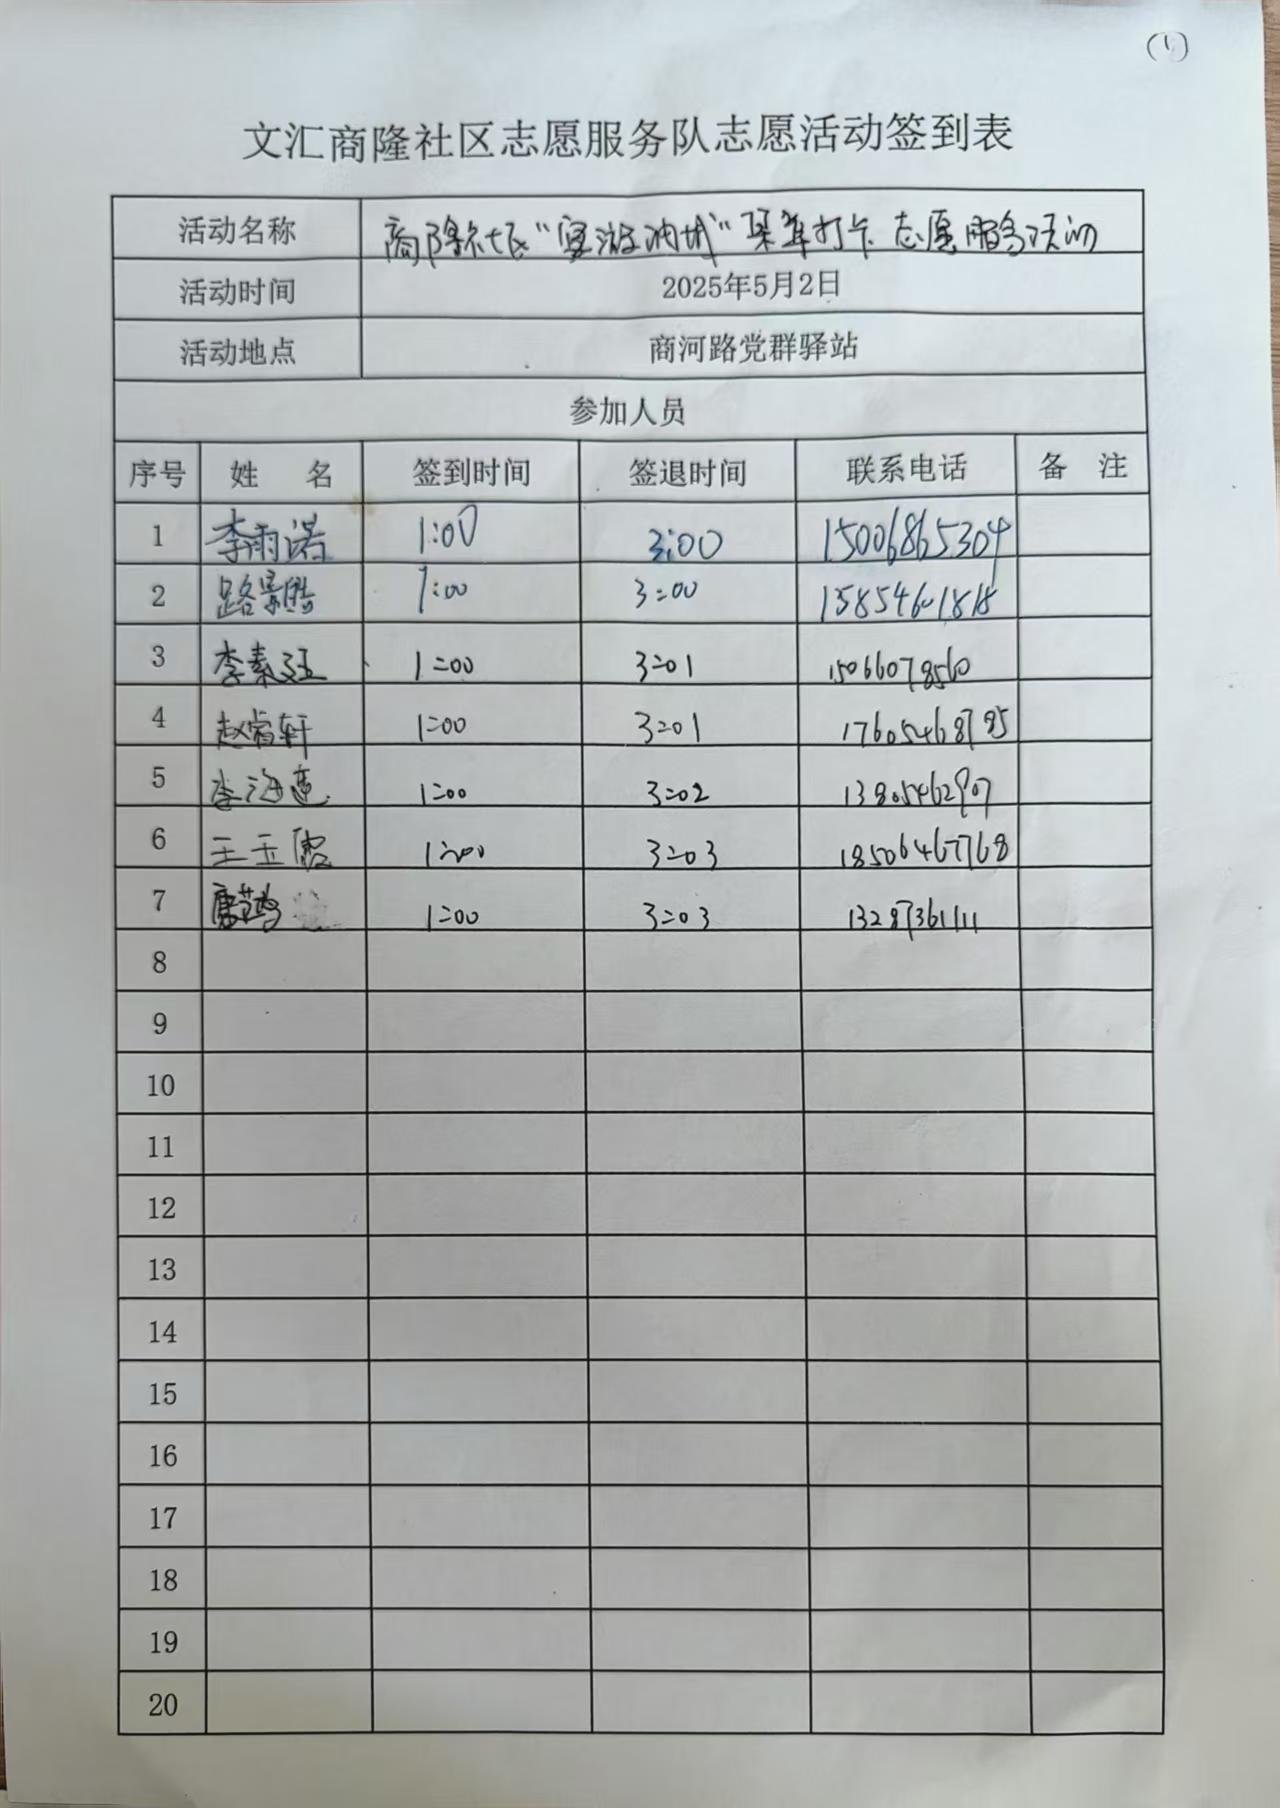 (1)
文汇商隆社区志愿服务队志愿活动签到表
活动名称 商隆社区“宴游油城”集章打卡志愿服务活动
活动时间 2025年5月2日
活动地点 商河路党群驿站
参加人员
序号 姓 名 签到时间 签退时间 联系电话 备 注
1 李雨诺 1:00 3:00 15006865304
2 路景皓 1:00 3:00 15854601818
3 李素珏 1:00 3:01 15066078560
4 赵睿轩 1:00 3:01 17605468785
5 李海莲 1:00 3:02
6 王玉霞 1:00 3:03 18506467768
7 1:00 3:03 13287361111
8
9
10
11
12
13
14
15
16
17
18
19
20